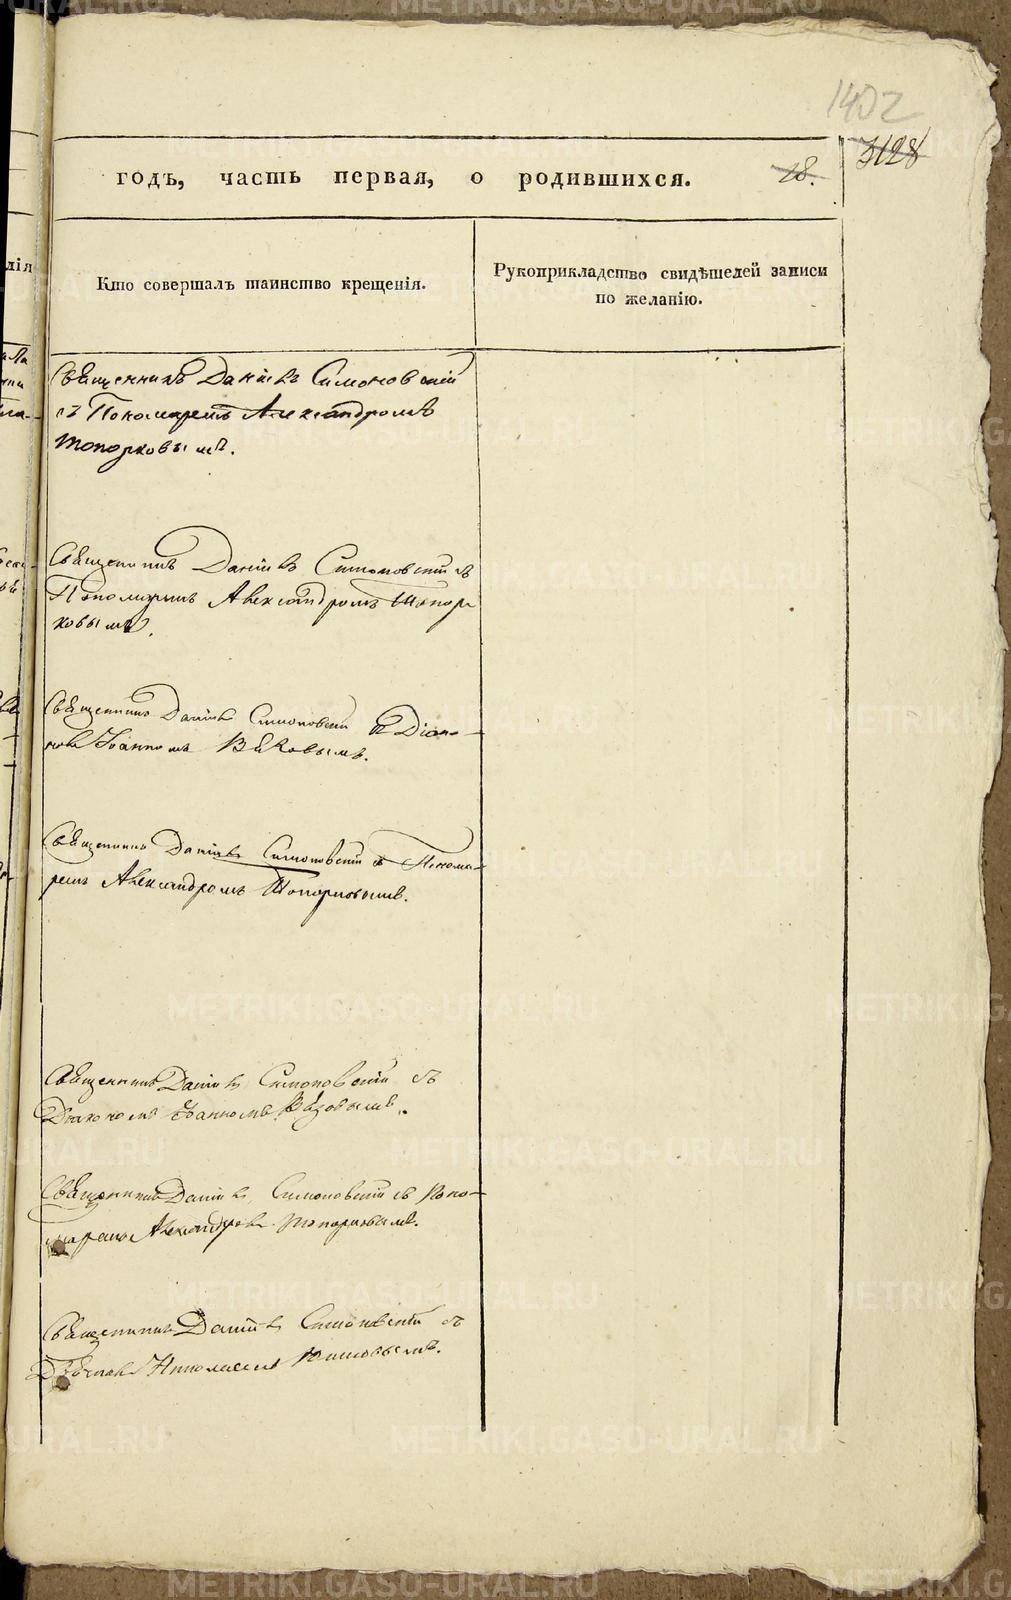 1402
3128
годъ, часть первая, о родившихся. 28.
Кто совершалъ таинство крещенія.
Рукоприкладство свидѣтелей записи
по желанію.
лія
Священникъ Даніилъ Симоновскій
съ Пономаремъ Александромъ
Топорковымъ.
Священникъ Даніилъ Симоновскій съ
Пономаремъ Александромъ Топор
ковымъ.
Священникъ Даніилъ Симоновскій съ Діако-
номъ Іоанномъ
Священникъ Даніилъ Симоновскій съ Понома-
ремъ Александромъ Топорковымъ.
Священникъ Даніилъ Симоновскій съ
Діакономъ Іоанномъ
Священникъ Даніилъ Симоновскій съ Поно-
маремъ Александромъ Топорковымъ.
Священникъ Даніилъ Симоновскій съ
Николаемъ
METRIKI.GASO-URAL.RU